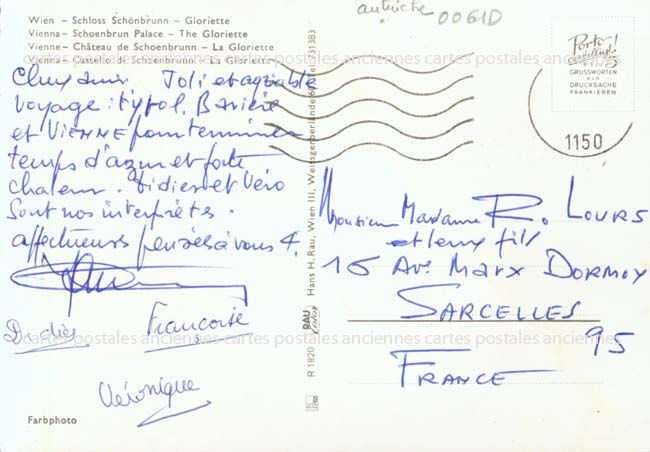 autriche 0061D
Wien – Schloss Schönbrunn – Gloriette
Vienna – Schoenbrun Palace – The Gloriette
Vienne – Château de Schoenbrunn – La Gloriette
Vienna – Castello de Schoenbrunn – La Gloriette
cartes postales anciennes cartes postales anciennes cartes postales anciennes
Chers amis. Joli et agréable
voyage : Tyrol, Bavière
et VIENNE pour terminer
temps d'azur et forte
chaleur. Didier et Véro
sont nos interprètes.
affectueuses pensées à vous 4.
Didier
Françoise
Véronique
Farbphoto
R 1820 RAU Hans H. Rau, Wien III, Weissgerberlände Tel. 731383
Porto
GRUSSWORTEN
ALS
DRUCKSACHE
FRANKIEREN
1150
Monsieur Madame R. LOURS
et leux fils
16 Ave Marx DORMOY
SARCELLES
95
FRANCE
cartes postales anciennes cartes postales anciennes cartes postales anciennes